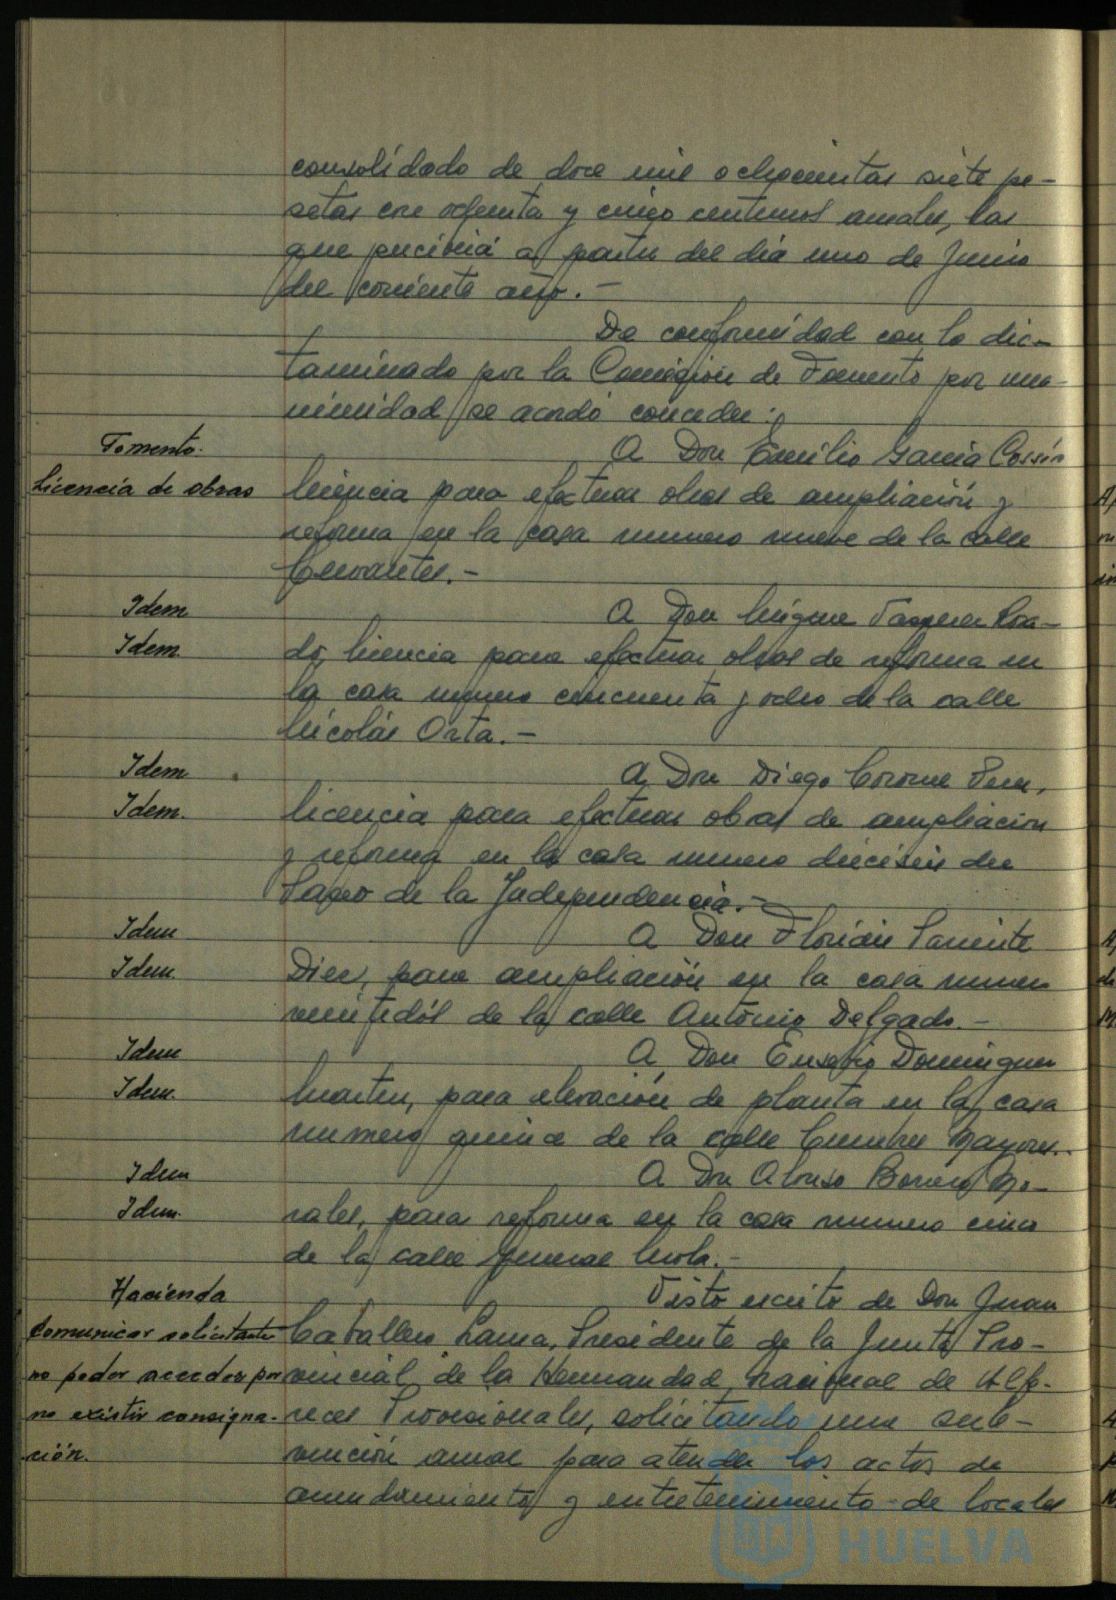 consolidado de doce mil ochocientas siete pe-
setas con ochenta y cinco centimos anuales, las
que percibirá a partir del día uno de Junio
del corriente año.-
De conformidad con lo dic-
taminado por la Comisión de Fomento por una-
nimidad se acordó conceder:
Fomento.
A Don Emilio García Cossío
Licencia de obras
licencia para efectuar obras de ampliación y
reforma en la casa numero nueve de la calle
Cervantes.-
Idem
A Don Miguel Rosa-
Idem
do, licencia para efectuar obras de reforma en
la casa numero cincuenta y ocho de la calle
Nicolás Orta.-
Idem
A Don Diego Coronel
Idem.
licencia para efectuar obras de ampliacion
y reforma en la casa numero dieciseis del
Paseo de la Independencia.-
Idem
A Don Florián
Idem.
Diez, para ampliación en la casa numero
veintidós de la calle Antonio Delgado.-
Idem
A Don Eusebio Dominguez
Idem.
Martin, para elevación de planta en la casa
numero quince de la calle Cumbres Mayores.-
Idem
A Don Alonso Borrero Mo-
Idem.
rales, para reforma en la casa numero cinco
de la calle General Mola.-
Hacienda
Visto escrito de Don Juan
Comunicar solicitante
Caballero Lama, Presidente de la Junta Pro-
no poder acceder por
vincial de la Hermandad nacional de Alfe-
no existir consigna-
reces Provisionales, solicitando una sub-
ción.
vención anual para atender los actos de
arrendamiento y entretenimiento de locales
HUELVA